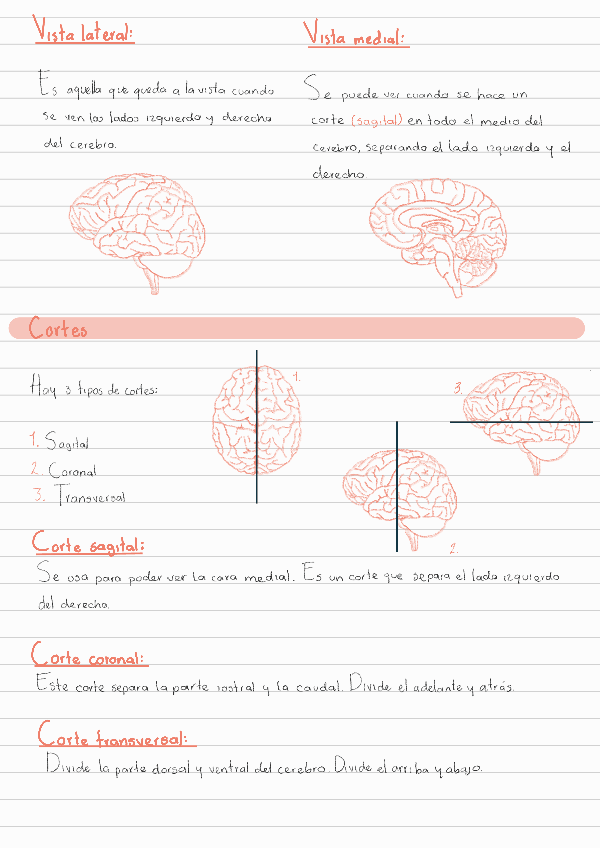 Vista lateral:
Es aquella que queda a la vista cuando
se ven los lados izquierdo y derecho
del cerebro.
Vista medial:
Se puede ver cuando se hace un
corte (sagital) en todo el medio del
cerebro, separando el lado izquierdo y el
derecho
Cortes
Hay 3 tipos de cortes:
1. Sagital
2. Coronal
3. Transversal
1.
2.
3.
Corte sagital:
Se usa para poder ver la cara medial. Es un corte que separa el lado izquierdo
del derecho.
Corte coronal:
Este corte separa la parte rostral y la caudal. Divide el adelante y atrás.
Corte transversal:
Divide la parte dorsal y ventral del cerebro. Divide el arriba y abajo.